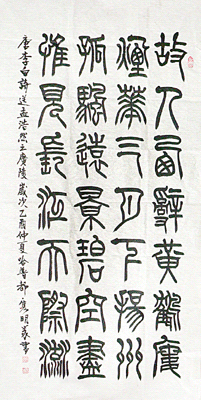 故人西辭黃鶴樓
煙華三月下揚州
孤颿遠景碧空盡
惟見長江天際流
唐李白詩送孟浩然之廣陵歲次乙酉仲夏 明義書